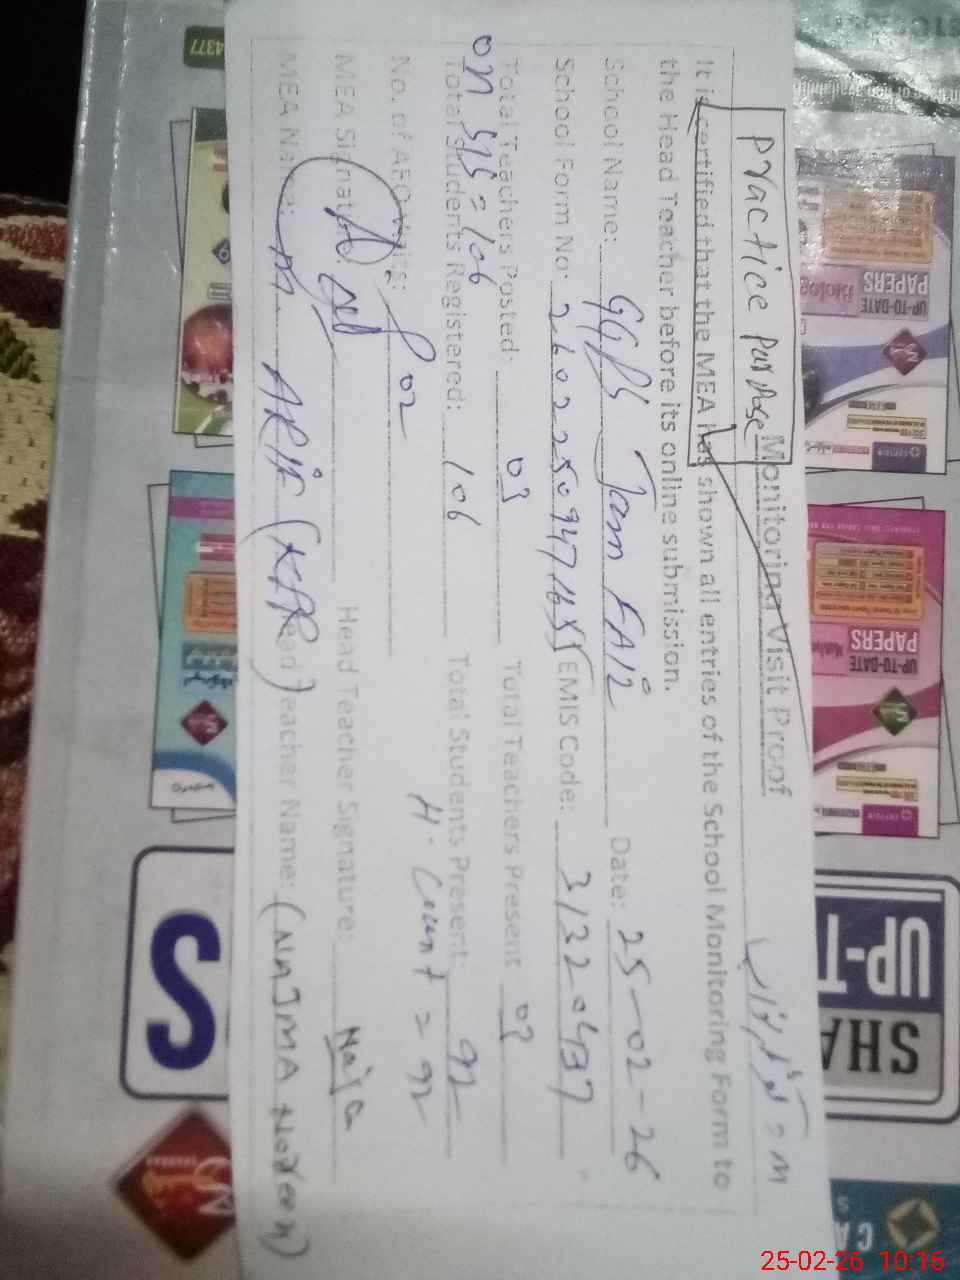 practice purpose
Monitoring Visit Proof
It is certified that the MEA has shown all entries of the School Monitoring Form to
the Head Teacher before its online submission.
School Name: GGPS Jam FAIZ Date: 25-02-26
School Form No: EMIS Code: 31320437
Total Teachers Posted: 03 Total Teachers Present 03
on SIS = 106
Total Students Registered: 106 Total Students Present: 92
H. Count = 92
No. of AEO Visits: 02
MEA Signature: Head Teacher Signature: Najc
MEA Name: M. ARIF (KAR) Head Teacher Name: (NAJMA Noreen)
PAPERS
UP-TO-DATE
PAPERS
UP-TO-DATE
UP-T
SHA
S
4377
25-02-26 10:16